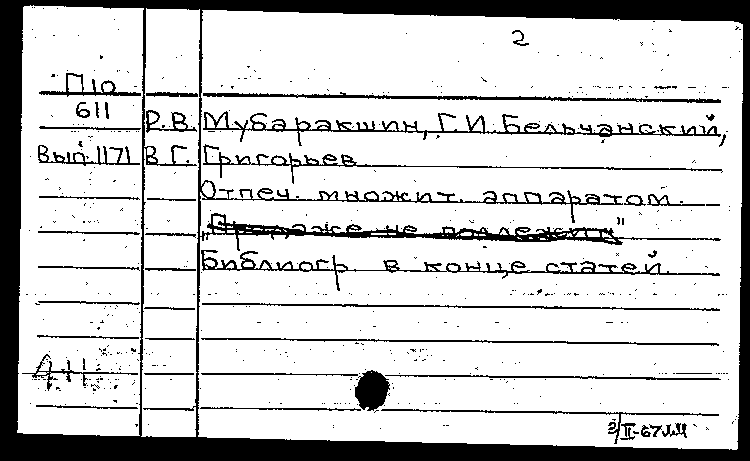 2
П10
611 Р.В. Мубаракшин, Г.И. Бельчанский,
Вып.1171 В.Г. Григорьев
Отпеч. множит. аппаратом.
„Продаже не подлежит"
Библиогр. в конце статей.
3/II-67